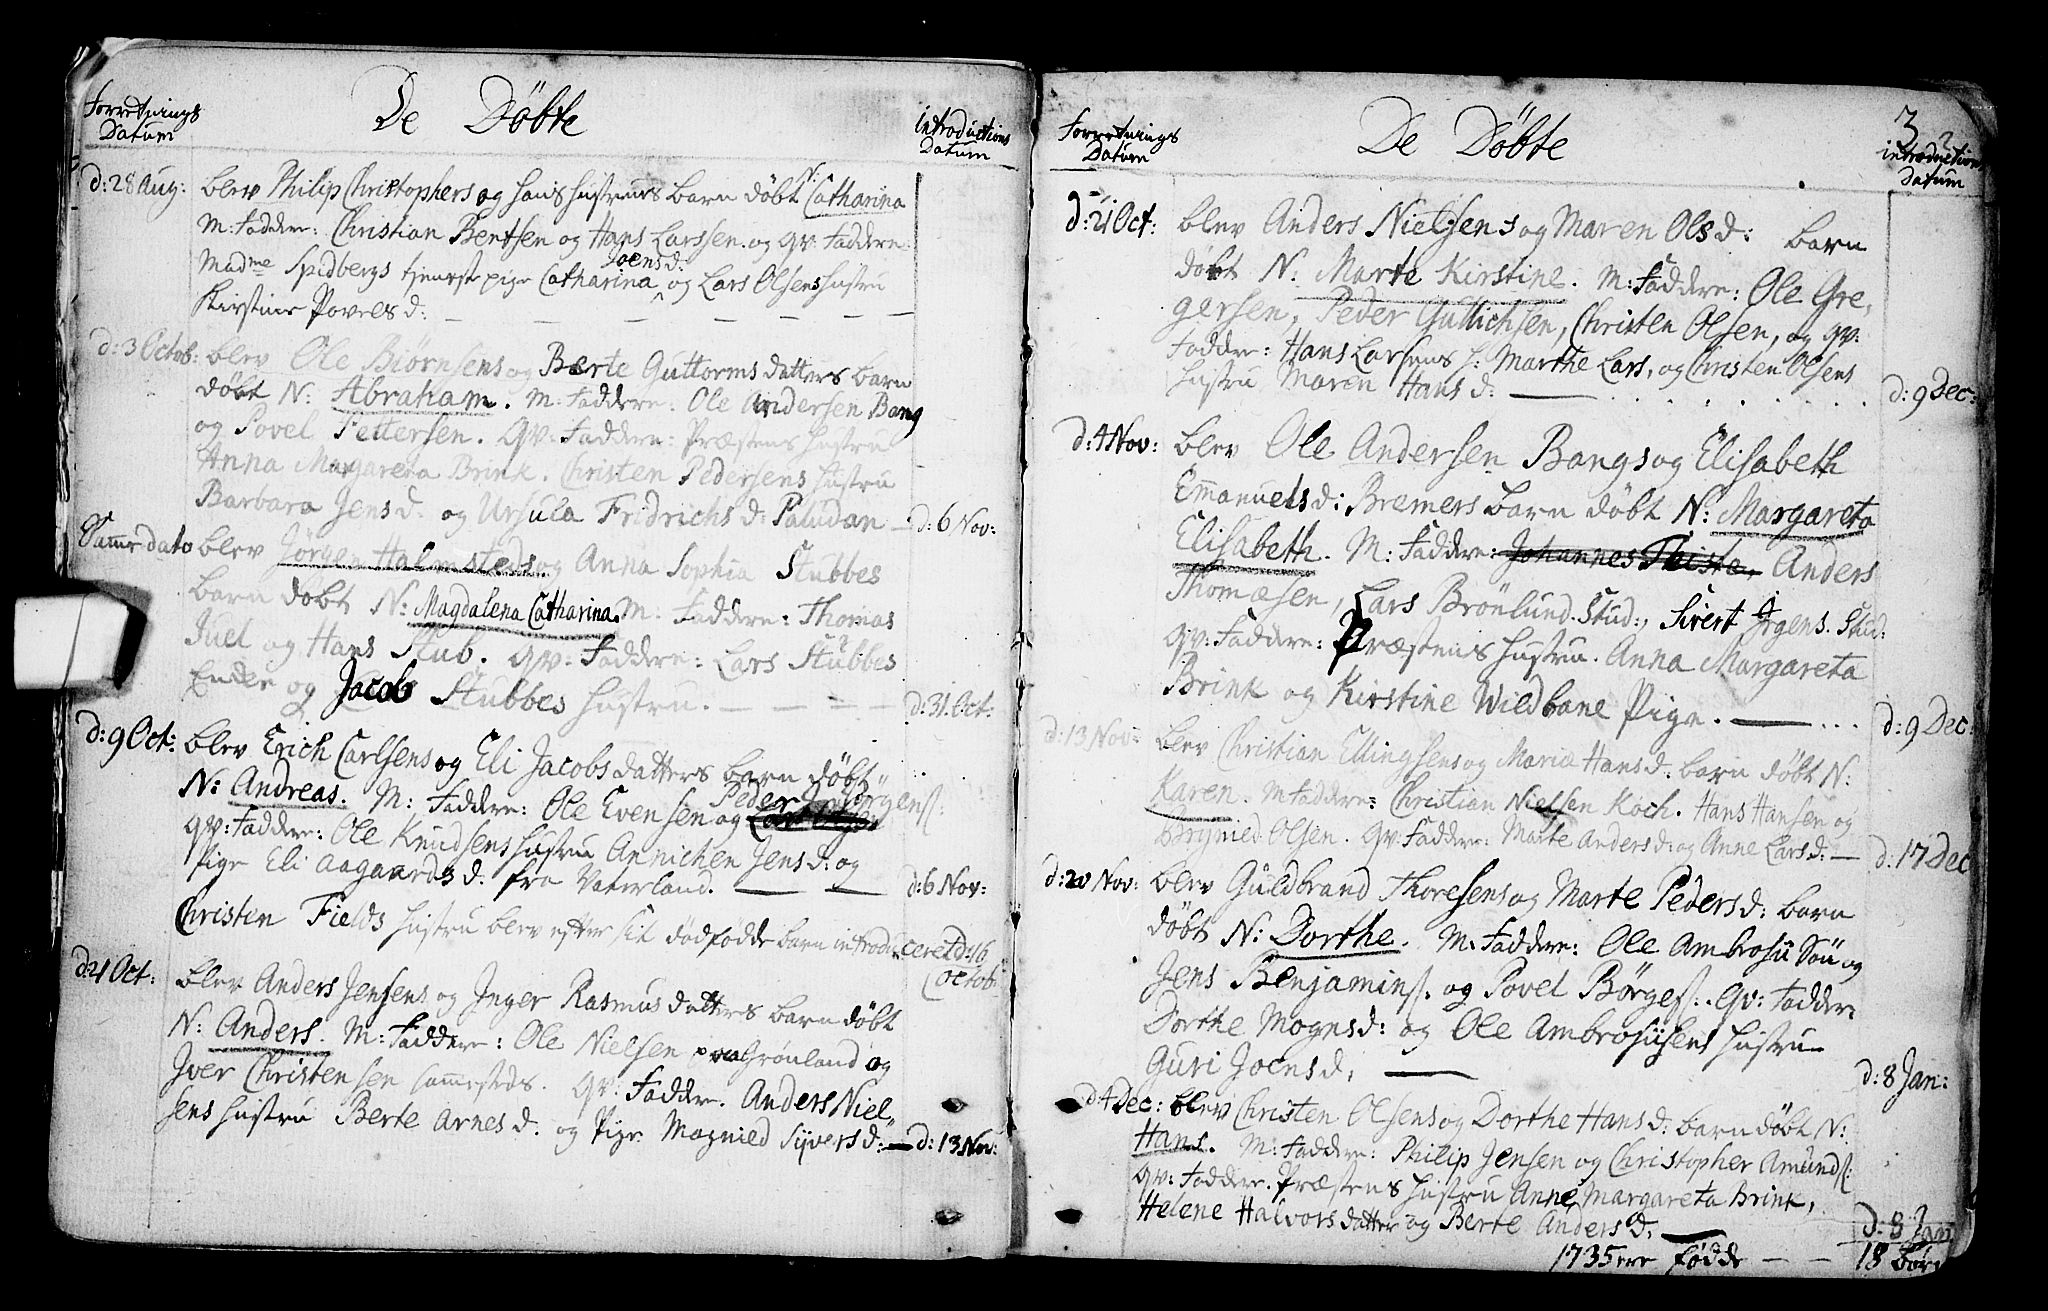 Forretnings
Datum
De Döbte
introductions
Datum
d: 28 Aug: blev Philip Christophers og hans hustrues barn döbt N: Catharina
M: Faddere: Christian Bentsen og Hans Larssen. og qv: Faddere
Madme Spidbergs tjeneste pige Catharina Joensd: og Lars Olsens hustru
Kirstine Povels d:
d: 3 Octob: blev Ole Biörnsens og Berte Guttorms datters barn
döbt N: Abraham. M: Faddere: Ole Andersen Bang
og Povel Pettersen. Qv: Faddere: Præstens hustru
Anna Margareta Brink. Christen Pedersens hustru
Barbara Jens d: og Ursula Fridrichs d: Paludan — d: 6 Nov:
Samme dato blev Jörgen Halmsteds og Anna Sophia Stubbes
barn döbt N: Magdalena Catharina. M: Faddere: Thomas
Juel og Hans Stub. qv: Faddere: Lars Stübbes
Encke og Jacob Stubbes hustru. d: 31. Oct:
d: 9 Oct: blev Erich Carlsens og Eli Jacobs datters barn döbt
N: Andreas. M: Faddere: Ole Evensen og Peder Jörgens:
qv: Faddere: Ole Knudsens hustru Annichen Jens d: og
Pige Eli Aagaards d: fra Vaterland. d: 6 Nov:
Christen Fields hustru blev efter sit dödfödde barn introduceret d: 16
Octob:
d: 21 Oct: blev Anders Jensens og Inger Rasmus datters barn döbt
N: Anders. M: Faddere: Ole Nielsen paa Grönland og
Iver Christensen sammesteds. qv: Faddere. Anders Niel
sens hustru Berte Arnes d. og Pige Magnied Syvers d: — d: 13 Nov:
Forretnings
Datum
De Döbte
3
introduction
datum
d: 21 Oct: blev Anders Nielsens og Maren Ols d: barn
döbt N. Marte Kirstine. M: Faddere: Ole Gre,
gersen, Peder Gullichsen, Christen Olsen, og qv:
Faddere: Hans Larsens h: Marthe Lars, og Christen Olsens
hustru Maren Hans d: d: 9 Dec:
d: 4 Nov: blev Ole Andersen Bangs og Elisabeth
Emanuels d: Bremers barn döbt N: Margareta
Elisabeth. M: Faddere: Johannes Thiste, Anders
Thomæsen, Lars Brönlund. Stud:, Sivert Jrgens. Stud:
qv: Faddere: Præstens hustru. Anna Margareta
Brink og Kirstine Wildbane Pige. d: 9 Dec:
d: 13 Nov: blev Christian Ellingsens og Maria Hans d: barn döbt N:
Karen. M Faddere: Christian Nielsen Koch. Hans Hansen og
Olsen. qv: Faddere: Marte Anders d: og Anne Lars d: — d: 17 Dec
d: 20 Nov: blev Guldbrand Thoresens og Marte Peders d: barn
döbt N: Dorthe. M: Faddere: Ole Ambrosii Sön og
Jens Benjamins: og Povel Börges:. Qv: Faddere
Dorthe Mogns d: og Ole Ambrosiisens hustru
Guri Joens d, d: 8 Jan:
d 4 Dec: blev Christen Olsens og Dorthe Hans d: barn döbt N:
Hans. M: Faddere: Philip Jensen og Christopher Amünds:
qv: Faddere. Præstens hustru Anne Margareta Brink,
Helene Halvors datter og Berte Anders d. d: 8 Jan
1735 ere födde — — 18 Börn